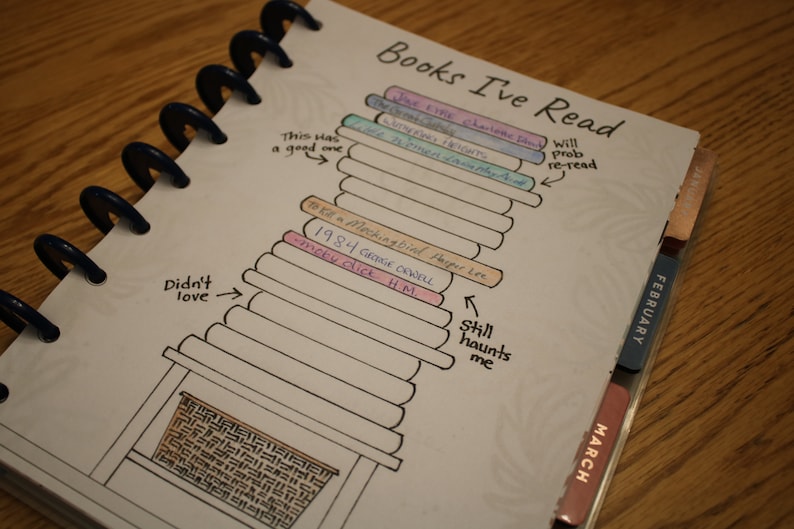 Books I've Read
JANE EYRE Charlotte Brontë
The Great Gatsby
WUTHERING HEIGHTS
Little Women Louisa May Alcott
This was
a good one
Will
prob
re-read
To Kill a Mockingbird Harper Lee
1984 GEORGE ORWELL
moby dick H.M.
Didn't
love
Still
haunts
me
JANUARY
FEBRUARY
MARCH